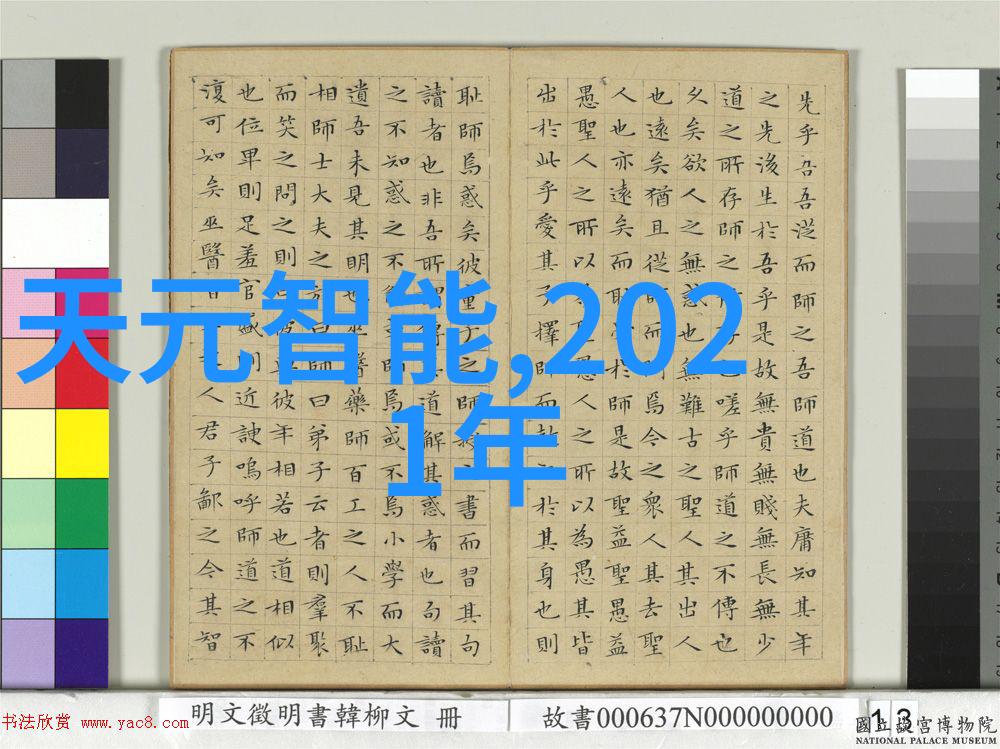 先乎吾吾從而師之吾師道也夫庸知其年
之先後生於吾乎是故無貴無賤無長無少
道之所存師之所存也嗟乎師道之不傳也
久矣欲人之無惑也無難古之聖人其出人
也遠矣猶且從師而問焉今之衆人其去聖
人也亦遠矣而恥學於師是故聖益聖愚益
愚聖人之所以聖愚人之所以為愚其皆
出於此乎愛其子擇師而教之於其身也則
耻師焉惑矣彼童子之師授之書而習其句
讀者也非吾所謂傳其道解其惑者也句讀
之不知惑之不師焉或不焉小學而大
遺吾未見其明也巫醫藥師百工之人不耻
相師士大夫之族曰師曰弟子云者則羣聚
而笑之問之則曰彼彼年相若也道相似
也位卑則足羞官盛則近諛嗚呼師道之不
復可知矣巫醫百之人君子鄙之今其智
天元智能,202
1年
明文徵明書韓柳文 冊
故書000637N000000000
13
书法欣赏 www.yac8.com
國立故宮博物院
NATIONAL PALACE MUSEUM